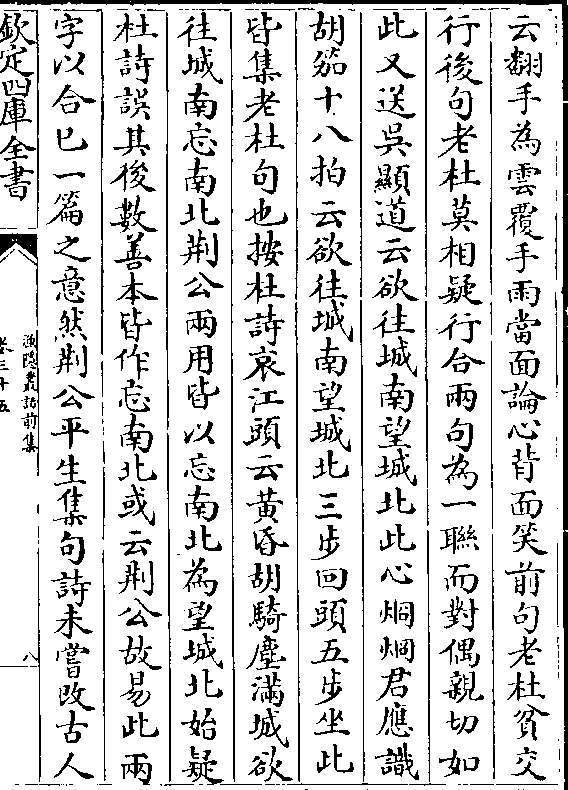 云翻手為雲覆手雨當面論心背面笑前句老杜貧交
行後句老杜莫相疑行合兩句為一聯而對偶親切如
此又送吳顯道云欲往城南望城北此心炯炯君應識
胡笳十八拍云欲往城南望城北三步回頭五步坐此
皆集老杜句也按杜詩哀江頭云黄昏胡騎塵滿城欲
往城南忘南北荆公兩用皆以忘南北為望城北始疑
杜詩誤其後數善本皆作忘南北或云荆公故易此兩
字以合已一篇之意然荆公平生集句詩未嘗改古人
欽定四庫全書
漁隱叢話前集
卷三十五
八